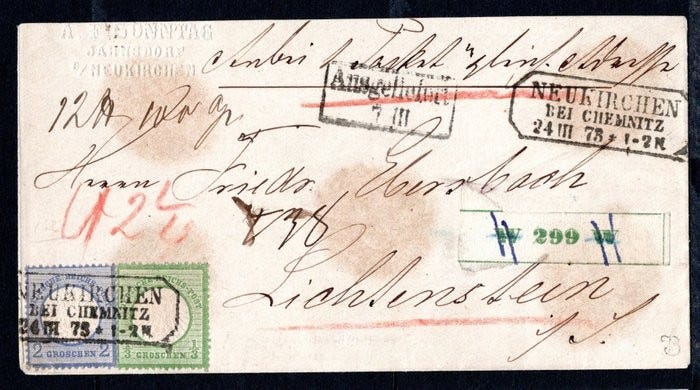 A. F. SONNTAG
JAHNSDORF
b/NEUKIRCHEN
Anbei 1 Packet gleich. Adresse
Ausgeliefert
7 III
NEUKIRCHEN
BEI CHEMNITZ
24 III 73 * 1-2 N
12 tt
Herrn Friedr. Ebersbach
238
W 299 W
Lichtenstein
i/S.
NEUKIRCHEN
BEI CHEMNITZ
24 III 73 * 1-2 N
2 GROSCHEN 2
1/3 GROSCHEN 1/3